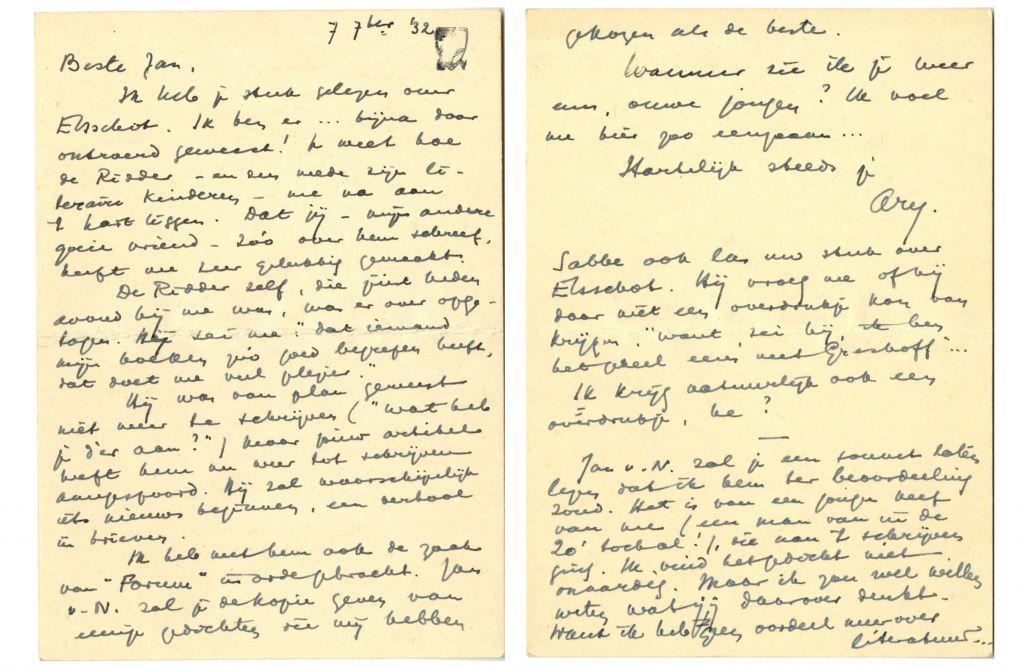 7 7ber '32
Beste Jan,
Ik heb je stuk gelezen over
Elsschot. Ik ben er ... bijna door
ontroerd geweest! Je weet hoe
de Ridder - en dus mede zijn li-
teraire kinderen - me na aan
't hart liggen. Dat jij - mijn andere
goeie vriend - zóó over hem schreef,
heeft me zeer gelukkig gemaakt.
De Ridder zelf, die juist heden
avond bij me was, was er over opge-
togen. Hij zei me: "dat iemand
mijn boeken zóó goed begrepen heeft,
dat doet me veel plezier."
Hij was van plan geweest
niet meer te schrijven ("wat heb
je d'er aan?") maar jouw artikel
heeft hem nu weer tot schrijven
aangespoord. Hij zal waarschijnlijk
iets nieuws beginnen, een verhaal
in brieven.
Ik heb met hem ook de zaak
van "Forum" in orde gebracht. Jan
v. N. zal je de kopie geven van
eenige gedichten die wij hebben
gekozen als de beste.
Wanneer zie ik je weer
eens, ouwe jongen? Ik voel
me hier zoo eenzaam ...
Hartelijk steeds je
Ary.
Sabbe ook las uw stuk over
Elsschot. Hij vroeg me of hij
daar niet een overdrukje kon van
krijgen, "want, zei hij, ik ben
het geheel eens met Greshoff" ...
Ik krijg natuurlijk ook een
overdrukje, he?
Jan v. N. zal je een sonnet laten
lezen dat ik hem ter beoordeeling
zond. Het is van een jongen neef
van me (een man van in de
20 toch al!), die aan 't schrijven
ging. Ik vind het gedicht niet
onaardig. Maar ik zou wel willen
weten wat jij daarover denkt.
Want ik heb geen oordeel meer over
literatuur...